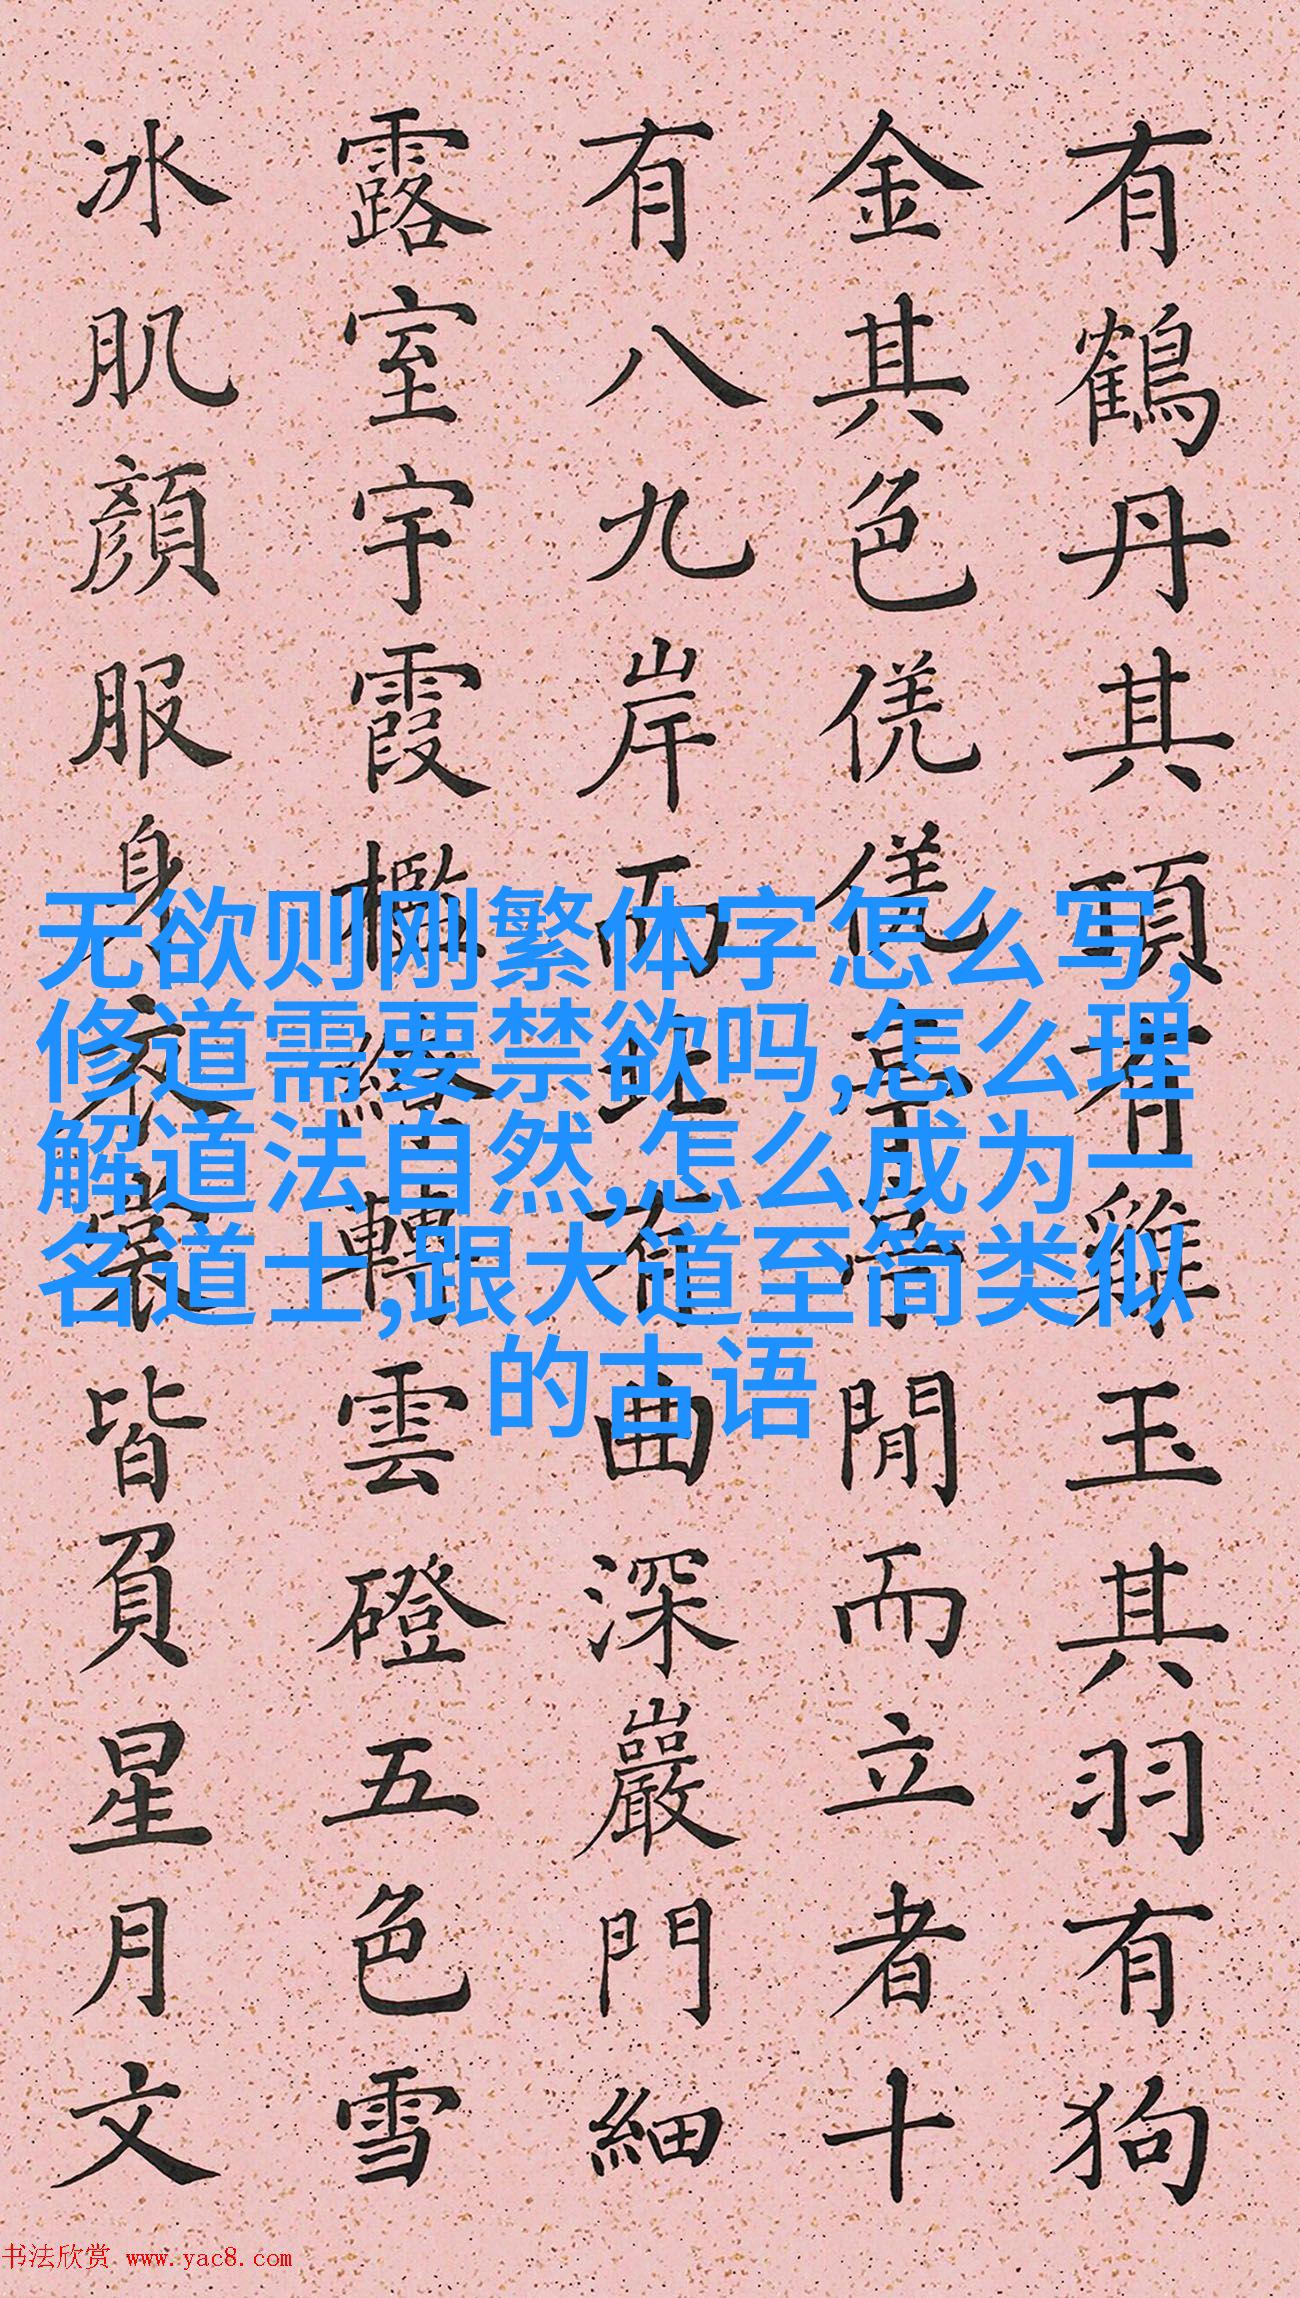 有鶴丹其頂有雞玉其羽有狗
金其色侁侁亭亭閒而立者十
有八九岸而有曲深巖門細
露室宇霞檻轉雲磴五色雪
冰肌顏服身衣裳皆負星月文
无欲则刚繁体字怎么写,
修道需要禁欲吗,怎么理
解道法自然,怎么成为一
名道士,跟大道至简类似
的古语
书法欣赏 www.yac8.com